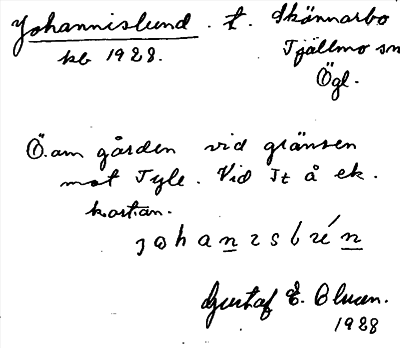 Johannislund. t. Skönnarbo
kb 1928. Tjällmo sn
Ögl.
Ö. om gården vid gränsen
mot Tyle. Vid Tt å ek.
kartan.
johanısbrén
Gustaf E. Olsson.
1928